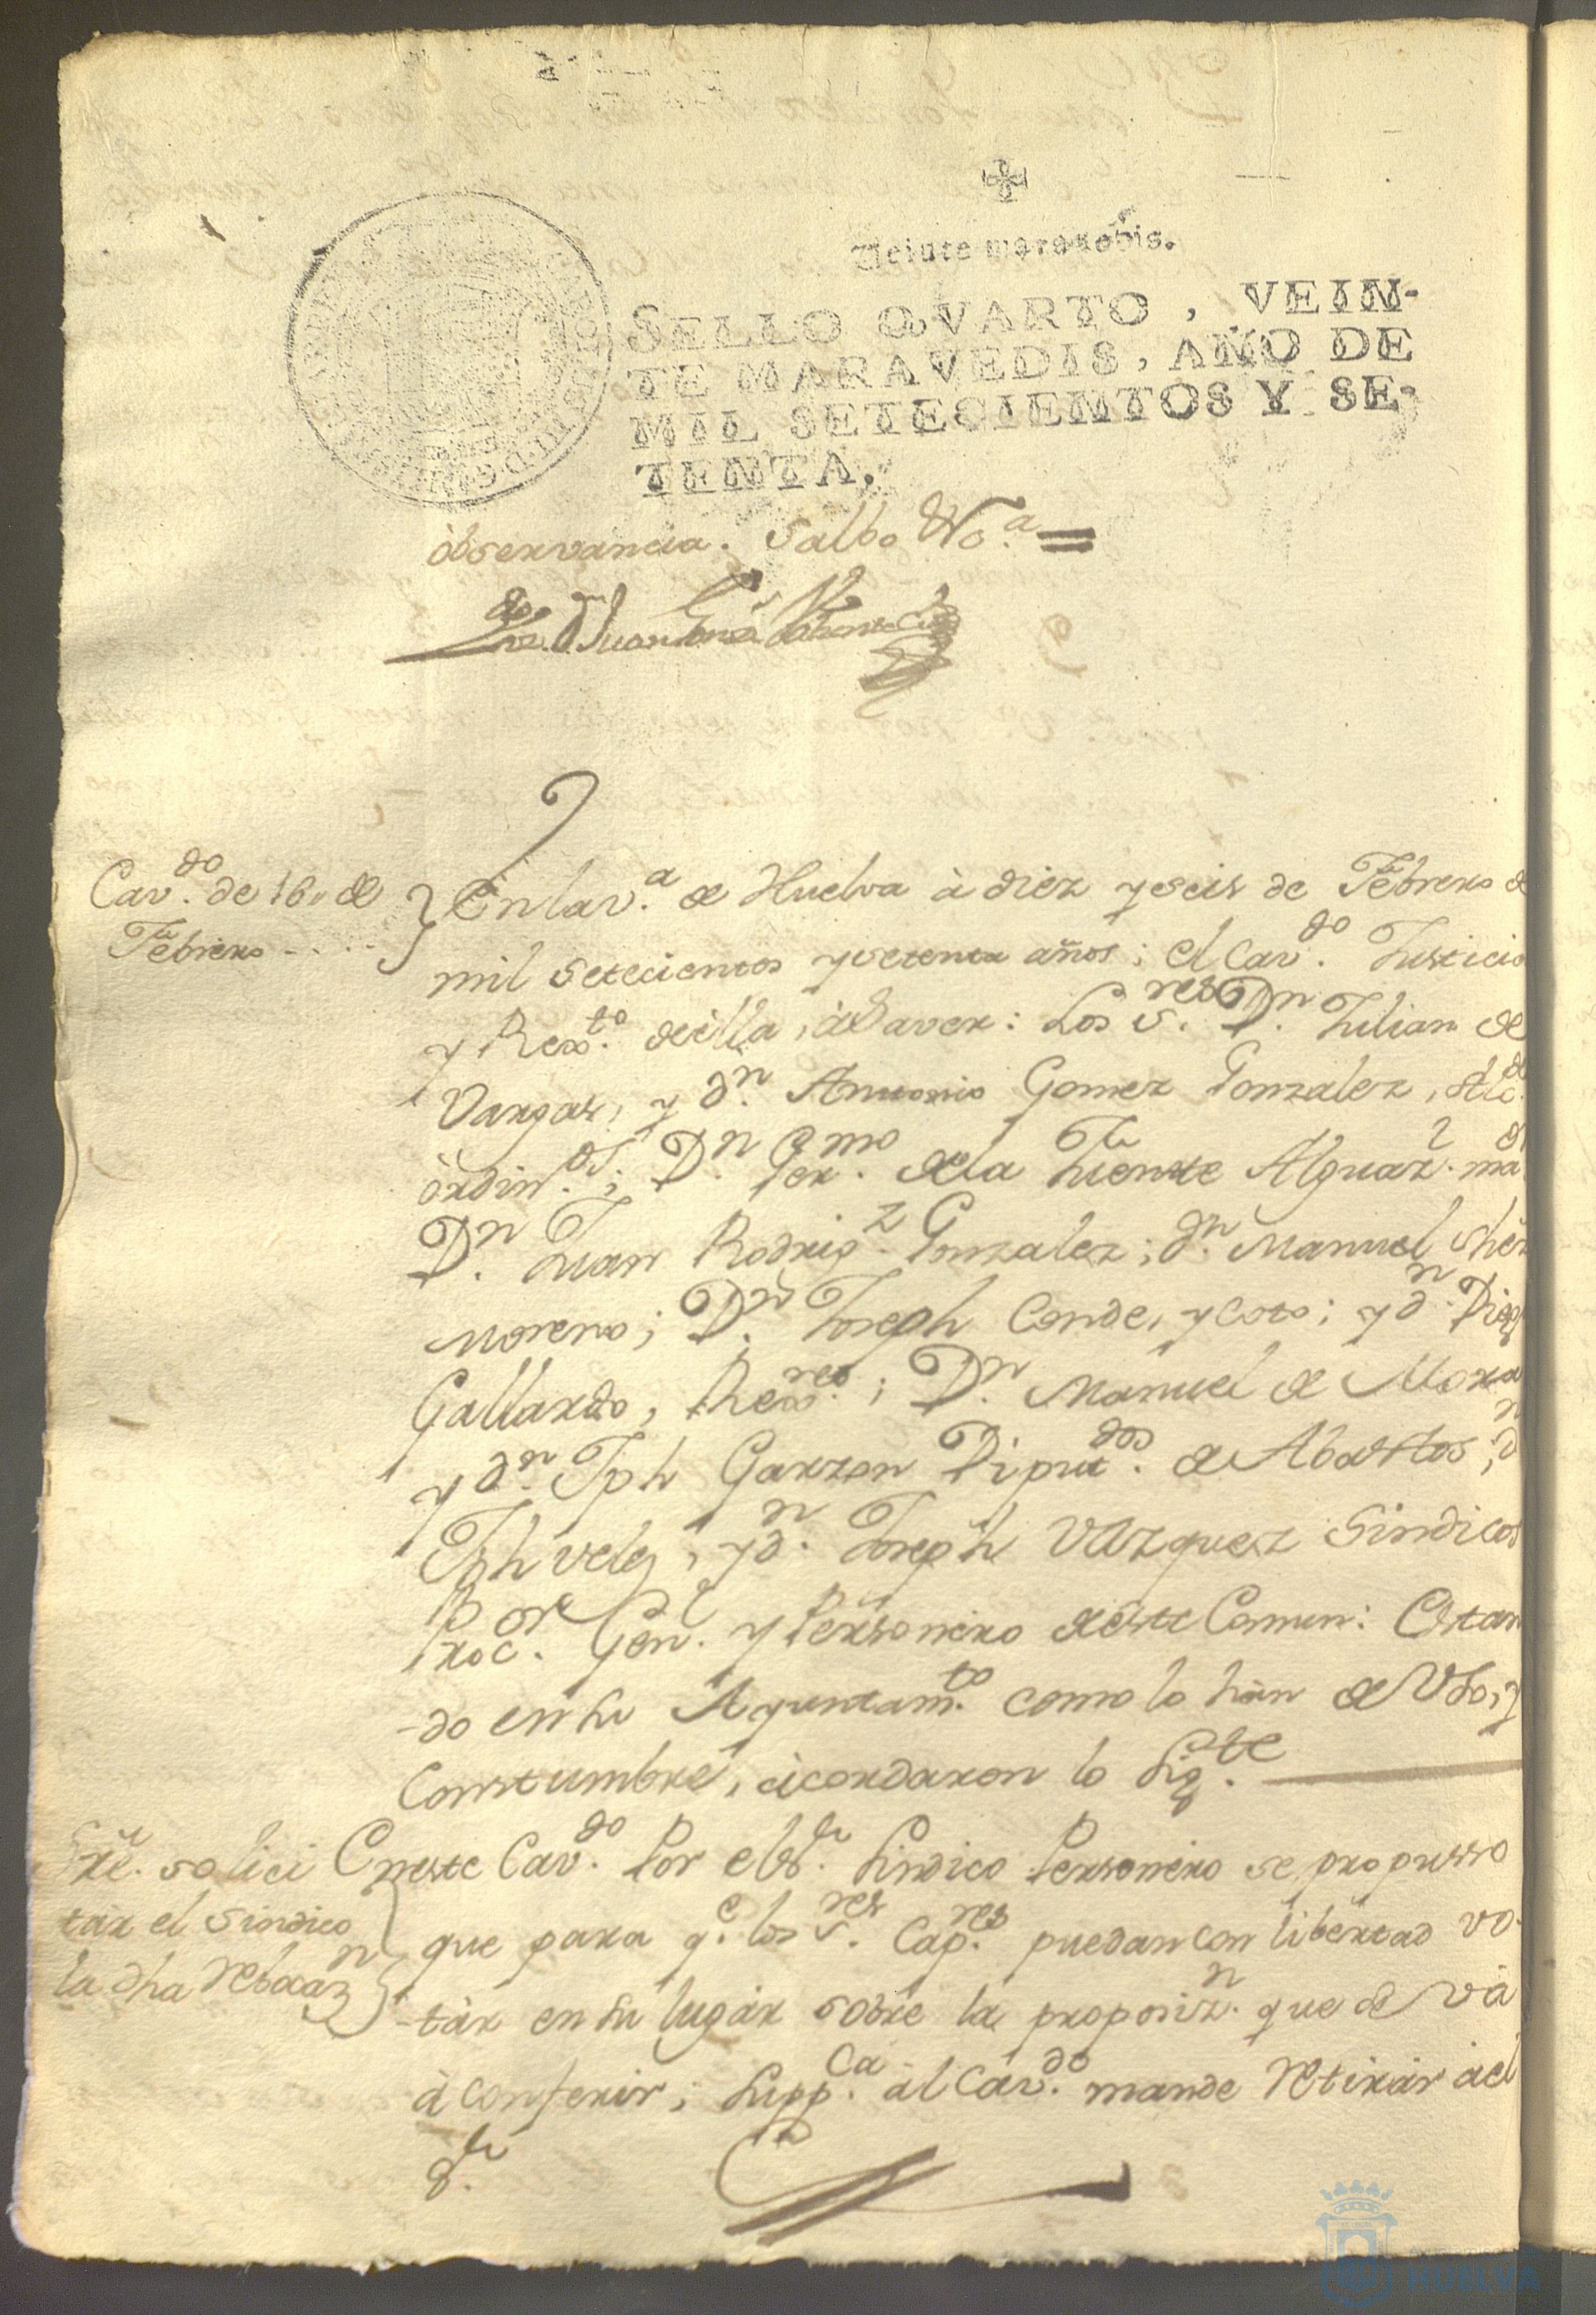 Veinte maravedis.
SELLO QVARTO, VEIN-
TE MARAVEDIS, AÑO DE
MIL SETECIENTOS Y SE-
TENTA.
observancia. Salbo
Cav.do de 16. de
Febrero
En la v.a de Huelva à diez y seis de Febrero de
mil setecientos y setenta años; el Cav.do Justicia
y Rex.to de ella, à Saver: Los S.res D.n Julian de
Vargas, y d.n Antonio Gomez Gonzalez, Alc.des
òrdin.os; D.n Ger.mo de la Fuente Alguaz.l ma.or
D.n Juan Rodrig.z Gonzalez; d.n Manuel Shez
Moreno; D.n Joseph Conde, y Coto; y d.n Diego
Gallardo, Rex.res; D.n Manuel de Mora
y d.n Jph Garzon Diput.dos de Abastos; d.n
Jph Velez, y d.n Joseph Vazquez Sindicos
Proc.or Gen.l y Personero de este Comun: Estan
-do en su Ayuntam.to como lo hàn de Vso, y
Constumbre, àcordaron lo Sig.te
Sre. solici
tàr el Sindico
la dha
En este Cav.do Por el S.r Sindico Personero se propusso
que para q.e los S.res Cap.res puedan con libertad vo-
-tàr en su lugàr sobre la proposiz.n que se và
à conferir; Supp.ca àl Cav.do mande retiràr àel
S.r
HUELVA